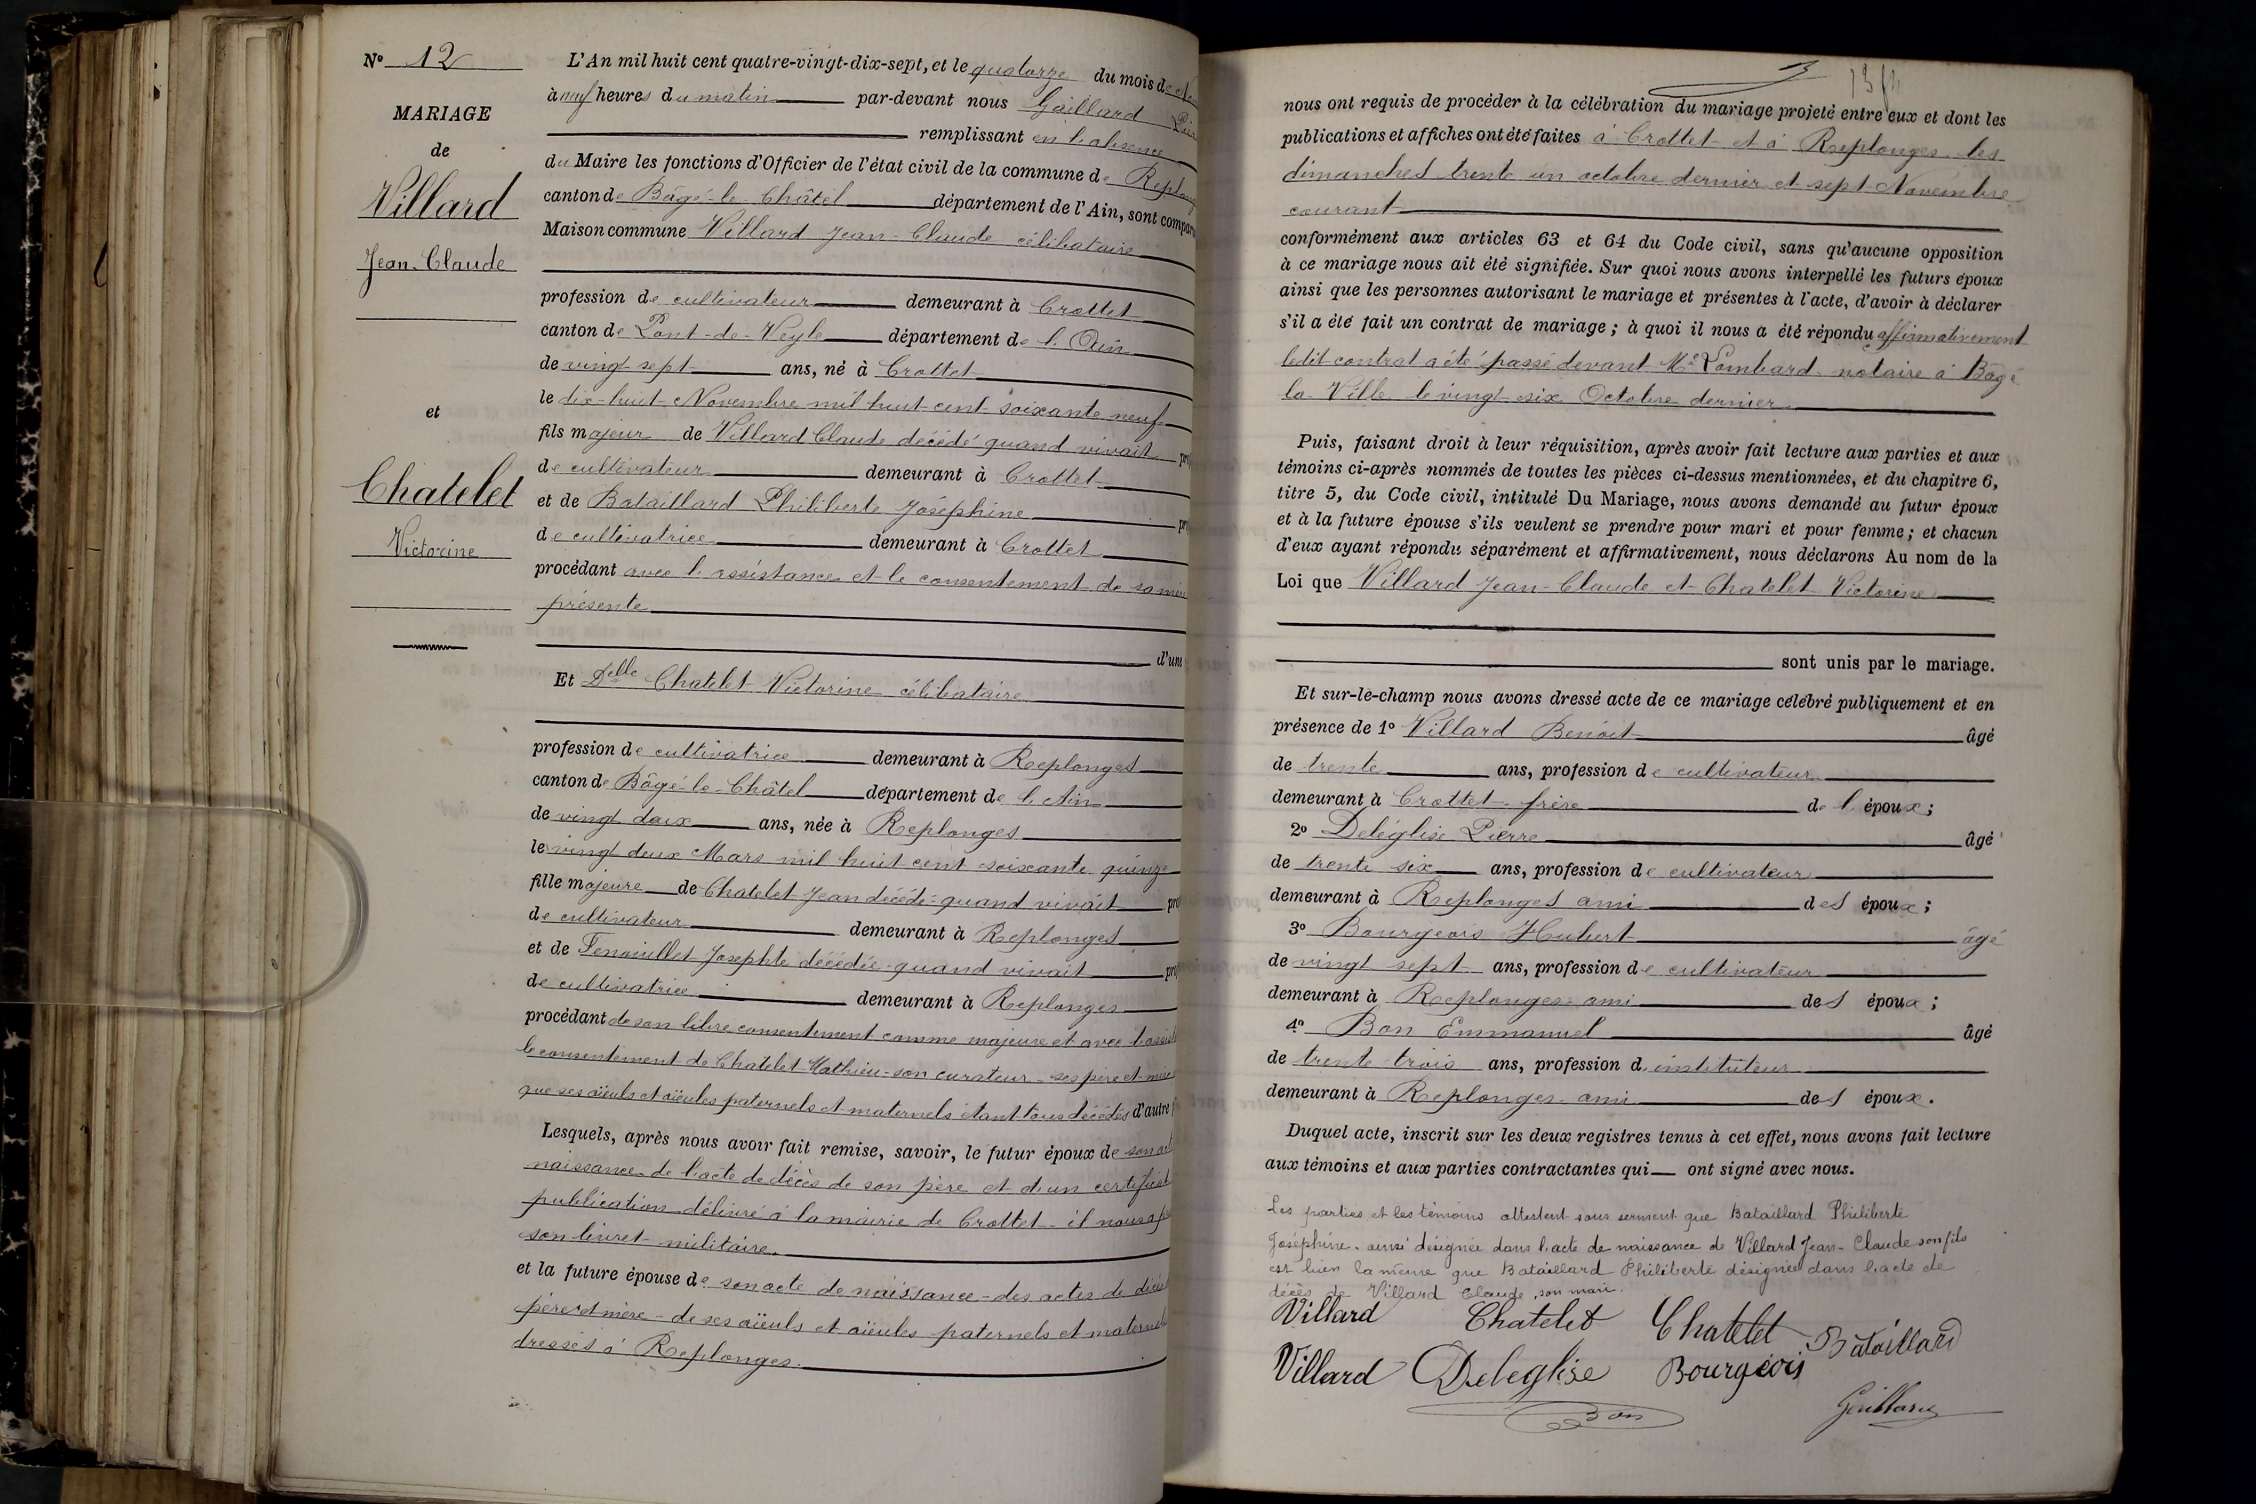 N° 12
MARIAGE
de
Villard
Jean-Claude
et
Chatelet
Victorine
L'An mil huit cent quatre-vingt-dix-sept, et le quatorze du mois de
à neuf heures du matin par-devant nous Gaillard
remplissant en l'absence
du Maire les fonctions d'Officier de l'état civil de la commune de
canton de Bâgé-le-Châtel département de l'Ain, sont
Maison commune Villard Jean-Claude célibataire
profession de cultivateur demeurant à Crottet
canton de Pont-de-Veyle département de l'Ain
de vingt sept ans, né à Crottet
le dix-huit Novembre mil huit cent soixante neuf
fils majeur de Villard Claude décédé quand vivait
de cultivateur demeurant à Crottet
et de Bataillard Philiberte Joséphine
de cultivatrice demeurant à Crottet
procédant avec l'assistance et le consentement de sa mère
présente
d'une
Et Delle Chatelet Victorine célibataire
profession de cultivatrice demeurant à Replonges
canton de Bâgé-le-Châtel département de l'Ain
de vingt deux ans, née à Replonges
le vingt deux Mars mil huit cent soixante quinze
fille majeure de Chatelet Jean décédé quand vivait
de cultivateur demeurant à Replonges
et de Fenouillet Josephte décédée quand vivait
de cultivatrice demeurant à Replonges
procédant de son libre consentement comme majeure et avec
le consentement de Chatelet Mathieu son curateur ses père et mère
que ses aïeuls et aïeules paternels et maternels étant tous décédés d'autre
Lesquels, après nous avoir fait remise, savoir, le futur époux de son
naissance de l'acte de décès de son père et d'un certificat
publication délivré à la mairie de Crottet il nous
son livret militaire.
et la future épouse de son acte de naissance - des actes de décès
père et mère - de ses aïeuls et aïeules paternels et maternels
dressés à Replonges.
nous ont requis de procéder à la célébration du mariage projeté entre eux et dont les
publications et affiches ont été faites à Crottet et à Replonges les
dimanches trente un octobre dernier et sept Novembre
courant
conformément aux articles 63 et 64 du Code civil, sans qu'aucune opposition
à ce mariage nous ait été signifiée. Sur quoi nous avons interpellé les futurs époux
ainsi que les personnes autorisant le mariage et présentes à l'acte, d'avoir à déclarer
s'il a été fait un contrat de mariage; à quoi il nous a été répondu affirmativement
ledit contrat a été passé devant Me Lombard notaire à Bâgé
la Ville le vingt six Octobre dernier
Puis, faisant droit à leur réquisition, après avoir fait lecture aux parties et aux
témoins ci-après nommés de toutes les pièces ci-dessus mentionnées, et du chapitre 6,
titre 5, du Code civil, intitulé Du Mariage, nous avons demandé au futur époux
et à la future épouse s'ils veulent se prendre pour mari et pour femme; et chacun
d'eux ayant répondu séparément et affirmativement, nous déclarons Au nom de la
Loi que Villard Jean-Claude et Chatelet Victorine
sont unis par le mariage.
Et sur-le-champ nous avons dressé acte de ce mariage célébré publiquement et en
présence de 1° Villard Benoit âgé
de trente ans, profession de cultivateur
demeurant à Crottet frère de l'époux;
2° Deléglise Pierre âgé
de trente six ans, profession de cultivateur
demeurant à Replonges ami des époux;
3° Bourgeois Hubert âgé
de vingt sept ans, profession de cultivateur
demeurant à Replonges ami des époux;
4° Bon Emmanuel âgé
de trente trois ans, profession d'instituteur
demeurant à Replonges ami des époux.
Duquel acte, inscrit sur les deux registres tenus à cet effet, nous avons fait lecture
aux témoins et aux parties contractantes qui ont signé avec nous.
Les parties et les témoins attestent sous serment que Bataillard Philiberte
Joséphine. ainsi désignée dans l'acte de naissance de Villard Jean-Claude son fils
est bien la même que Bataillard Philiberte désignée dans l'acte de
décès de Villard Claude, son mari.
Villard Chatelet Chatelet Bataillard
Villard Deleglise Bourgeois
Bon Gaillard